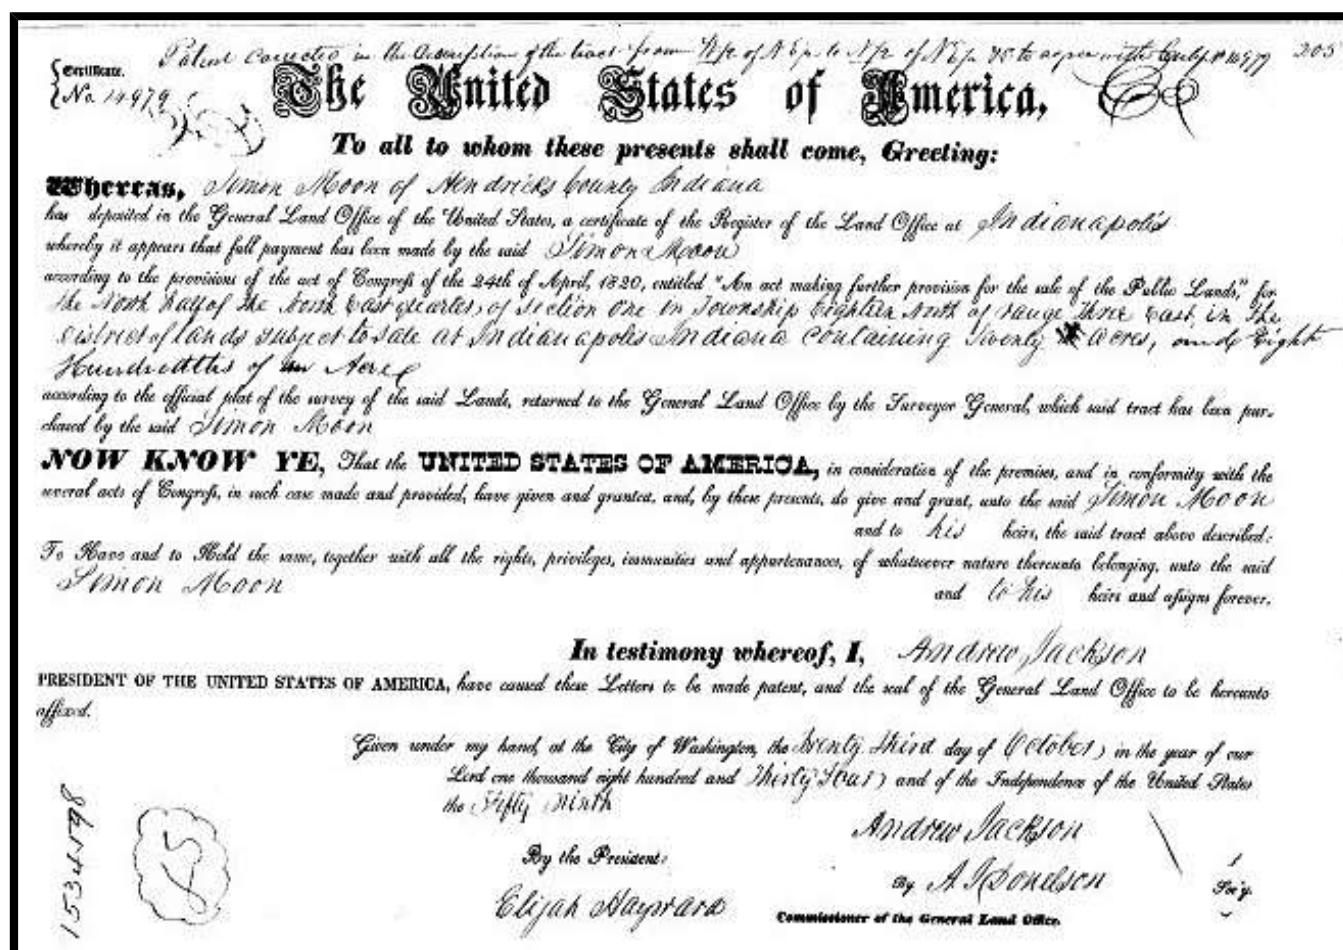 Patent corrected in the description of the tract from of N E to of N E so to agree with 14979 205
Certificate.
No. 14979
The United States of America,
To all to whom these presents shall come, Greeting:
Whereas, Simon Moon of Hendricks County Indiana
has deposited in the General Land Office of the United States, a certificate of the Register of the Land Office at Indianapolis
whereby it appears that full payment has been made by the said Simon Moon
according to the provisions of the act of Congress of the 24th of April, 1820, entitled "An act making further provision for the sale of the Public Lands," for
the North half of the North East quarter, of Section One in Township Eighteen North of range Three East, in the
district of lands subject to sale at Indianapolis Indiana containing Twenty acres, and Eight
Hundredths of an Acre
according to the official plat of the survey of the said Lands, returned to the General Land Office by the Surveyor General, which said tract has been pur-
chased by the said Simon Moon
NOW KNOW YE, That the UNITED STATES OF AMERICA, in consideration of the premises, and in conformity with the
several acts of Congress, in such case made and provided, have given and granted, and, by these presents, do give and grant, unto the said Simon Moon
and to his heirs, the said tract above described:
To Have and to Hold the same, together with all the rights, privileges, immunities and appurtenances, of whatsoever nature thereunto belonging, unto the said
Simon Moon and to his heirs and assigns forever.
In testimony whereof, I, Andrew Jackson
PRESIDENT OF THE UNITED STATES OF AMERICA, have caused these Letters to be made patent, and the seal of the General Land Office to be hereunto
affixed.
Given under my hand, at the City of Washington, the Twenty third day of October in the year of our
Lord one thousand eight hundred and Thirty four and of the Independence of the United States
the Fifty Ninth
Andrew Jackson
By the President:
By A J Donelson Sec'y.
Elijah Hayward Commissioner of the General Land Office.
1534498